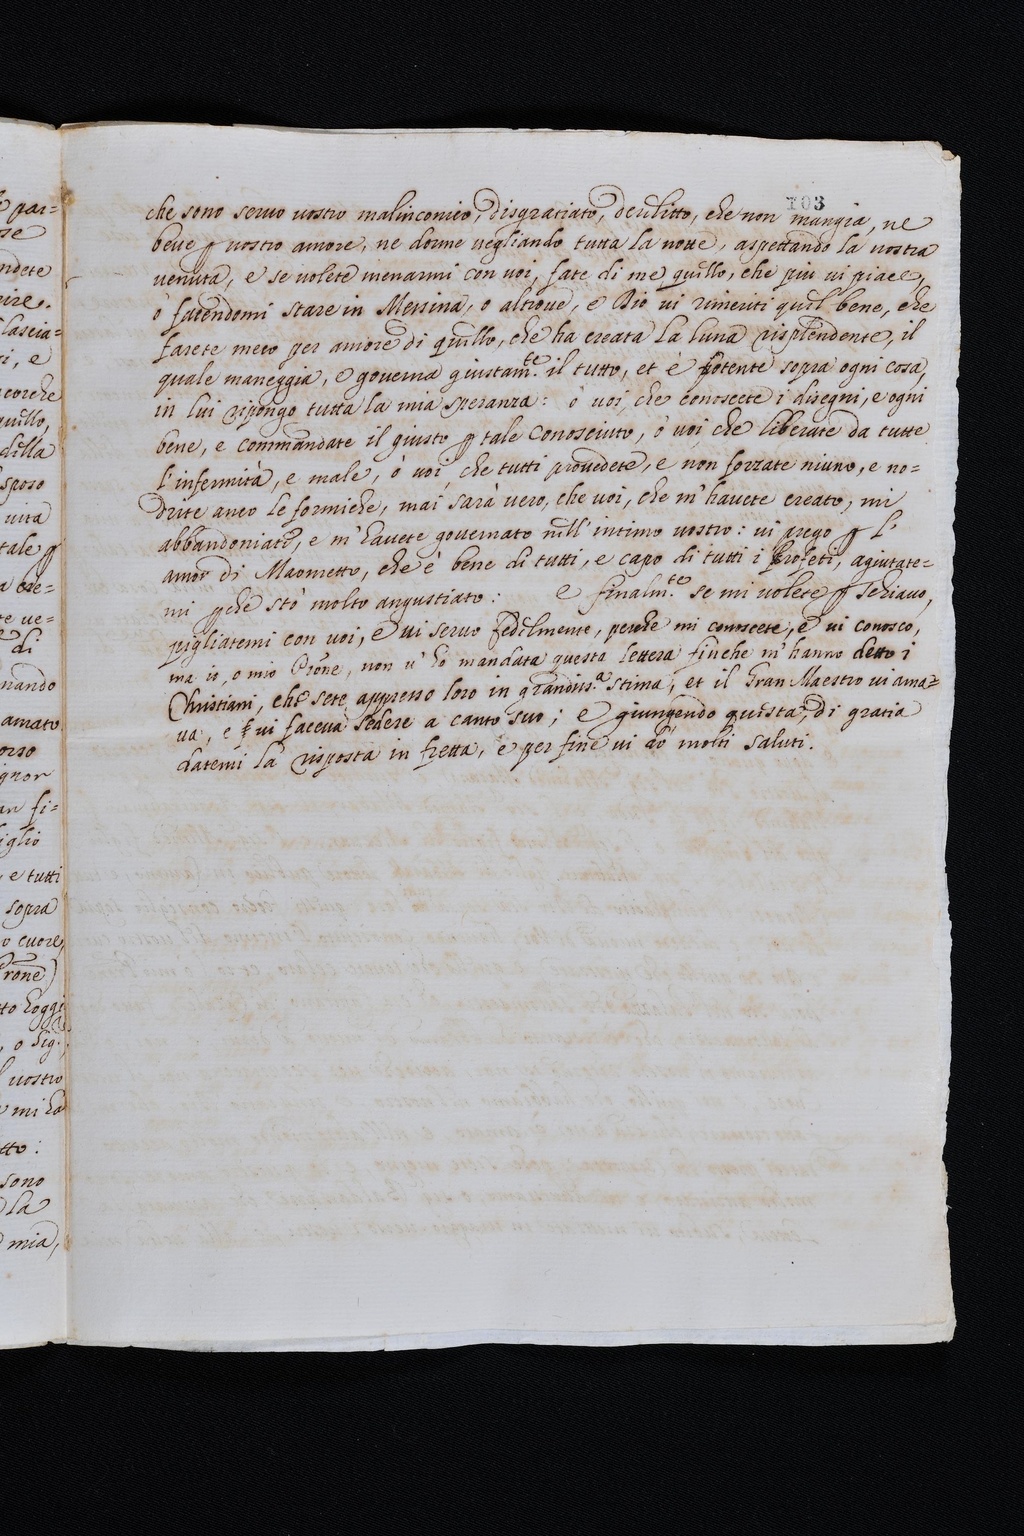 103
che sono seruo uostro malinconico, disgratiato, derilitto, che non mangia, ne
beue ꝑ uostro amore, ne dorme uegliando tutta la notte, aspettando la uostra
uenuta, e se uolete menarmi con uoi, fate di me quello, che più ui piace,
ò facendomi stare in Messina, o altroue, e Dio ui rimeriti quel bene, che
farete meco per amore di quello, che ha creata la luna risplendente, il
quale maneggia, e gouerna giustam.te il tutto, et è potente sopra ogni cosa,
in lui ripongo tutta la mia speranza: ò uoi, che conoscete i disegni, e ogni
bene, e commandate il giusto ꝑ tale conosciuto, ò uoi, che liberate da tutte
l'infermità, e male, ò uoi, che tutti prouedete, e non forzate niuno, e no=
drite anco le formiche, mai sarà uero, che uoi, che m'hauete creato, mi
abbandoniate, e m'hauete gouernato nell'intimo uostro: ui prego ꝑ l'
amor di Maometto, che è bene di tutti, e capo di tutti i Profeti, agiutate=
mi ꝑche stò molto angustiato: e finalm.te se mi uolete ꝑ schiauo,
pigliatemi con uoi, e ui seruo fedelmente, perche mi conoscete, e ui conosco,
ma io, o mio Prone, non u'hò mandata questa lettera finche m'hanno detto i
Christiani, che sete appresso loro in grandiss.a stima, et il Gran Maestro ui ama=
ua, e ui faceua sedere a canto suo; e giungendo questa, di gratia
datemi la risposta in fretta, e per fine ui dò molti saluti.